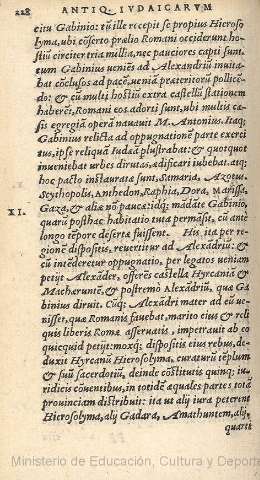 228 ANTIQ. IVDAICARVM
citu Gabinio: tũ ille recepit se propius Hieroso
lyma, ubi cõserto prælio Romani occiderunt ho-
stiũ circiter tria millia, nec pauciores capti sunt.
tum Gabinius ueniens ad Alexandriũ inuita
bat cõclusos ad pacẽ, ueniã præteritorũ pollicẽ-
do: & cũ multi hostiũ extra castelli stationem
haberẽt, Romani eos adorti sunt, ubi multis ca-
sis egregiã operã nauauit M. Antonius. Itaq;
Gabinius relicta ad oppugnationẽ parte exerci
tus, ipse reliquã Iudæã plustrabat: & quotquot
inueniebat urbes dirutas, ædificari iubebat. atq;
hoc pacto instaurata sunt, Samaria, Azotus,
Scythopolis, Anthedon, Raphia, Dora, Marissa,
Gaza, & aliæ nõ paucæ: idq; mãdãte Gabinio,
XI. quarũ posthac habitatio tuta permãsit, cũ antè
longo tẽpore desertæ fuissent. His ita per re-
gionẽ dispositis, reuertitur ad Alexãdriũ: &
cũ intẽderetur oppugnatio, per legatos ueniam
petijt Alexãder, offerẽs castella Hyrcaniã &
Machæruntẽ, & postremò Alexãdriũ, quæ Ga
binius diruit. Cũq; Alexãdri mater ad eũ ue-
nisset, quæ Romanis fauebat, marito eius & reli
quis liberis Romæ asseruatis, impetrauit ab eo
quicquid petijt: moxq; dispositis eius rebus, de-
duxit Hyrcanũ Hierosolyma, curaturũ tẽplum
& suũ sacerdotiũ, deinde cõstitutis quinq; iu-
ridicis cõuentibus, in totidẽ æquales partes totã
prouinciam distribuit: ita ut alij iura peterent
Hierosolyma, alij Gadara, Amathuntem, alij,
quarti
Ministerio de Educación, Cultura y Deporte